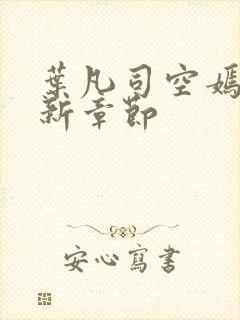 葉凡司空嫣
新章節
安心寫書